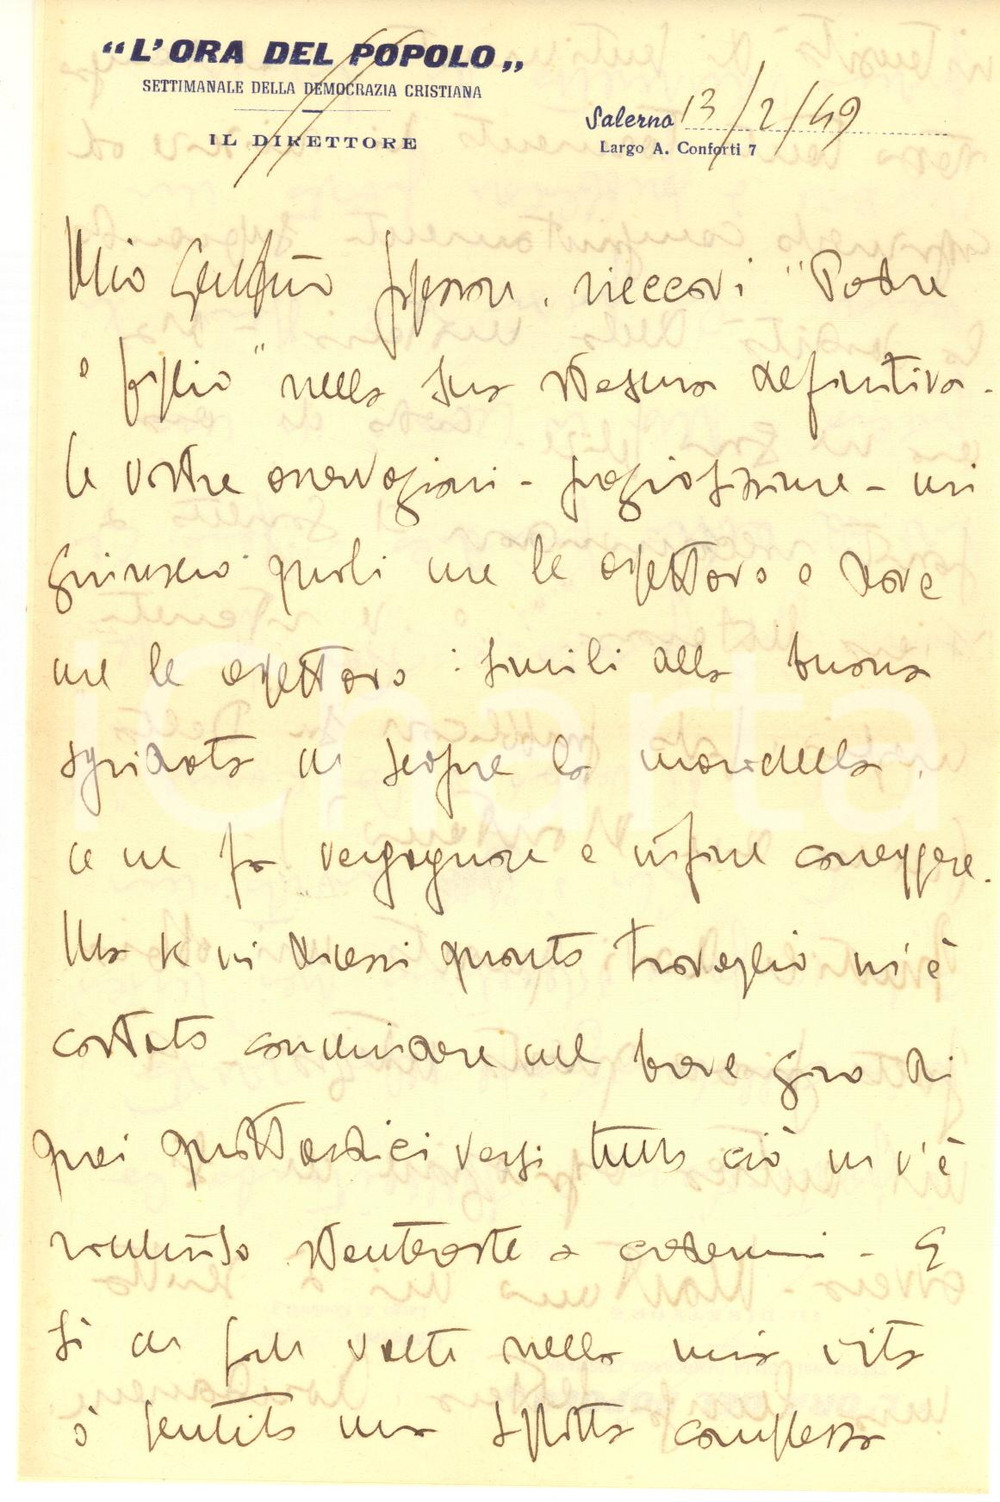 “L'ORA DEL POPOLO„
SETTIMANALE DELLA DEMOCRAZIA CRISTIANA
IL DIRETTORE
Salerno 13/2/49
Largo A. Conforti 7
Mio Professore, rieccovi "Padre
e figlio" nella sua stesura definitiva.
Le vostre osservazioni - preziosissime - mi
giunsero quali me le aspettavo e dove
me le aspettavo: simili alla buona
sgridata di sempre la
ce ne fa vergognare e infine correggere.
Ma se vi dicessi quanto travaglio m'è
costato condensare nel breve giro di
quei quattordici versi tutto ciò ch v'è
stentereste a credermi - E
sì di volte nella mia vita
ò sentito una complessa
iCharta